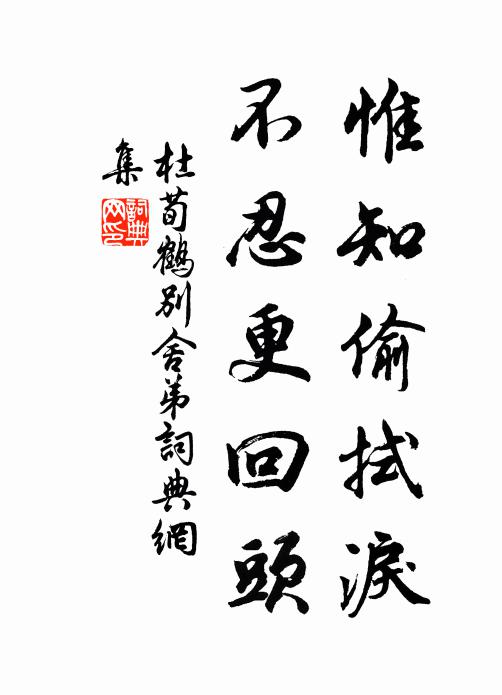 惟知偷拭淚
不忍更回頭
杜荀鶴別舍弟詞典網
集
詞典
网印